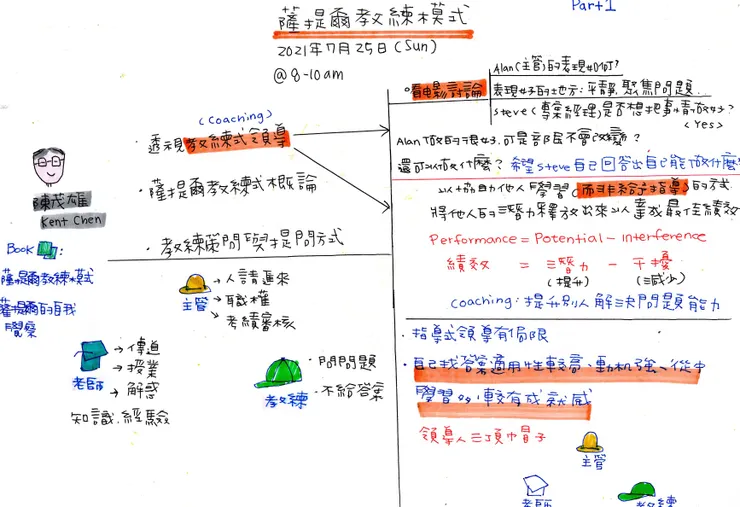 Part 1
薩提爾教練模式
2021年7月25日(Sun)
@8-10am
(Coaching)
・透視教練式領導
・薩提爾教練式概論
・教練策問與提問方式
陳茂雄
Kent Chen
Book:
薩提爾教練模式
薩提爾的自我
覺察
主管
→人請進來
→職權
→考績審核
老師
→傳道
→授業
→解惑
知識.經驗
教練
・問問題
・不給答案
看電影討論
Alan(主管)的表現如何?
表現好的地方:平靜,聚焦問題.
Steve(專案經理)是否想把事情做好?
<Yes>
Alan做的很好,可是部屬不會改變?
還可以做什麼?希望Steve自己回答出自己能做什麼!
以協助他人學習(而非給予指導)的方式
將他人的潛力釋放出來以達成最佳績效
Performance = Potential - Interference
績效 = 潛力 - 干擾
(提升) (減少)
Coaching:提升別人解決問題能力
・指導式領導有侷限
・自己找答案適用性較高、動机強、從中
學習多,較有成就感
領導人三頂帽子
主管
老師
教練